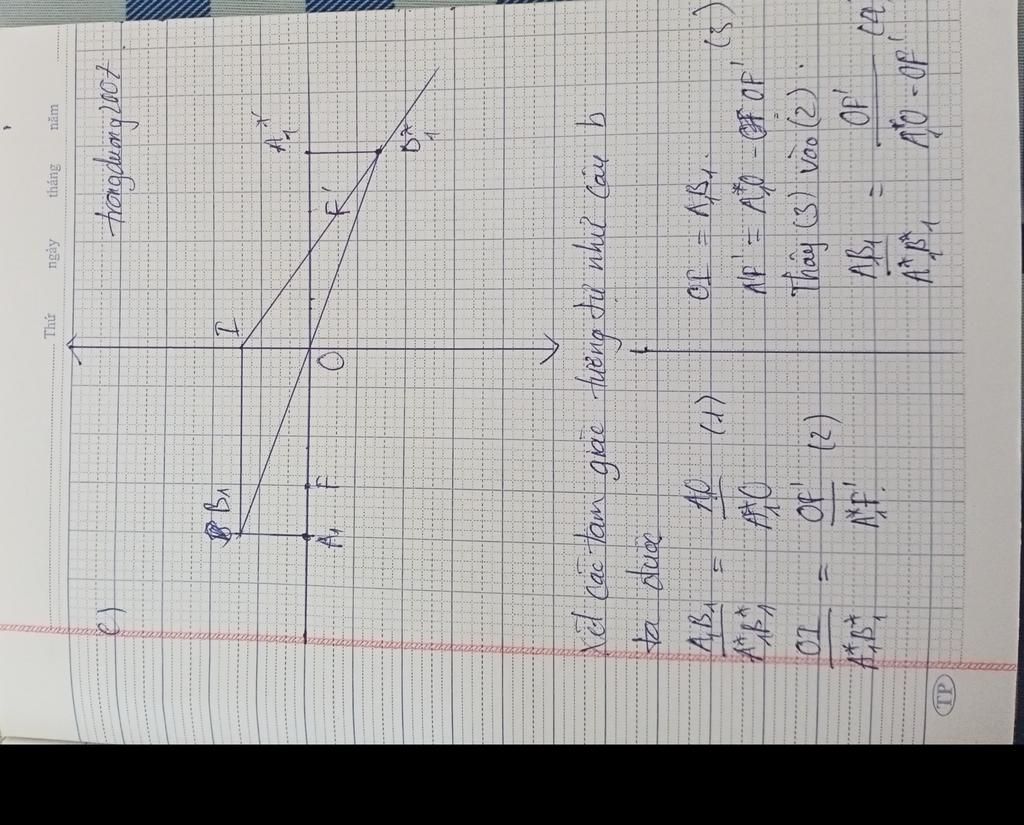 Thứ ngày tháng năm
trongduong2007
c)
B₁ I A₁*
A₁ F O F' B₁*
Xét các tam giác tương tự như câu b
ta được
A₁B₁ / A₁*B₁* = A₁O / A₁*O (1)
OI / A₁*B₁* = OF' / A₁*F' (2)
OI = A₁B₁. (3)
A₁*F' = A₁*O - OF'
Thay (3) vào (2).
A₁B₁ / A₁*B₁* = OF' / A₁*O - OF' (4)
TP